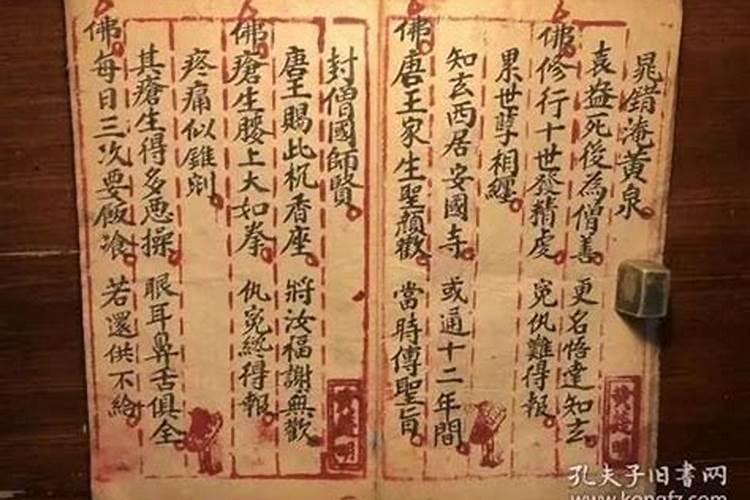 晁錯淹黃泉
袁盎死後為僧善 更名悟達知玄
佛修行十世登精處 冤仇難得報
累世孽相纏
知玄西居安國寺 或通十二年間
佛唐王家生聖顏歡 當時傳聖旨
封僧國師賢
唐王賜此杌香座 將汝福謝無歡
佛瘡生腰上大如拳 仇冤終得報
疼痛似錐剜
其瘡生得多惡操 眼耳鼻舌俱全
佛每日三次要飯飡 若還供不給
孔夫子旧书网